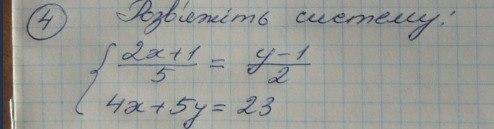 ④ Розв'яжіть систему:
{ (2x+1)/5 = (y-1)/2
4x+5y=23